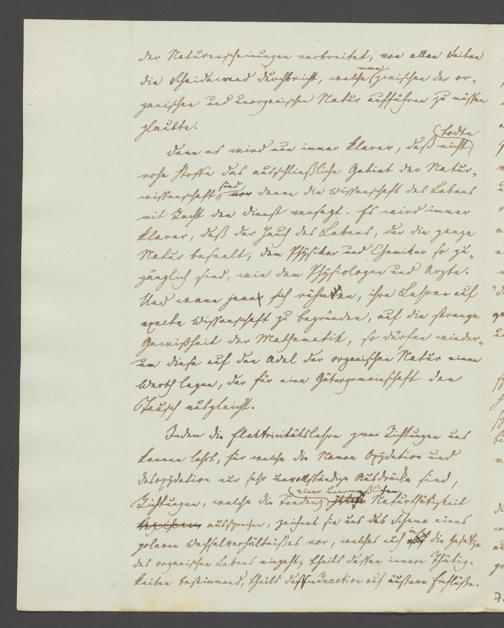 der Naturerscheinungen verbreitet, von allen Seiten
die Scheidewand durchbricht, welche man zwischen der or-
ganischen und unorganischen Natur aufführen zu müssen
glaubte.
Denn es wird nun immer klarer, daß nicht todte
rohe Stoffe das ausschließliche Gebiet der Natur-
wissenschaft sind, denen die Wissenschaft des Lebens
mit Recht den Dienst versagt. Es wird immer
klarer, daß der Hauch des Lebens, der die ganze
Natur beseelt, dem Physiker und Chemiker so zu-
gänglich sind, wie dem Physiologen und Arzte.
Und wenn jene sich rühmen, ihre Lehren auf
exacte Wissenschaft zu begründen, auf die strenge
Gewißheit der Mathematik, so dürfen wieder-
um diese auf den Adel der organischen Natur einen
Werth legen, der für eine Gütergemeinschaft den
Tausch ausgleicht.
Indem die Elektricitätslehre zwei Richtungen uns
kennen lehrt, für welche die Namen Oxydation und
Desoxydation nur sehr unvollständige Ausdrücke sind,
Richtungen, welche die Tendenz einer Naturthätigkeit
aussprechen, zeichnet sie uns das Schema eines
polaren Wechselverhältnißes vor, welches auch die Gesetze
des organischen Lebens eingeht, theils dessen innere Thätig-
keiten bestimmend, theils dessen Reaction auf äußere Einflüsse.